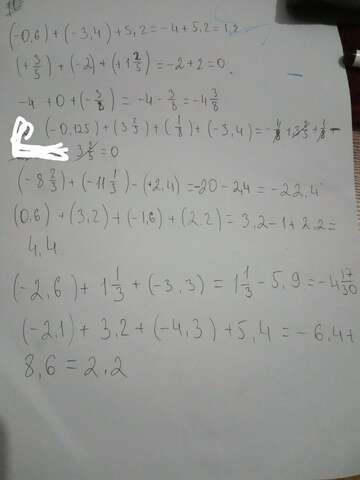 (-0,6) + (-3,4) + 5,2 = -4 + 5,2 = 1,2
(+3/5) + (-2) + (+1 2/5) = -2 + 2 = 0
-4 + 0 + (-3/8) = -4 - 3/8 = -4 3/8
(-0,125) + (3 2/5) + (1/8) + (-3,4) = -1/8 + 3 2/5 + 1/8 -
3 2/5 = 0
(-8 2/3) + (-11 1/3) - (+2,4) = -20 - 2,4 = -22,4
(0,6) + (3,2) + (-1,6) + (2,2) = 3,2 - 1 + 2,2 =
4,4
(-2,6) + 1 1/3 + (-3,3) = 1 1/3 - 5,9 = -4 17/30
(-2,1) + 3,2 + (-4,3) + 5,4 = -6,4 +
8,6 = 2,2